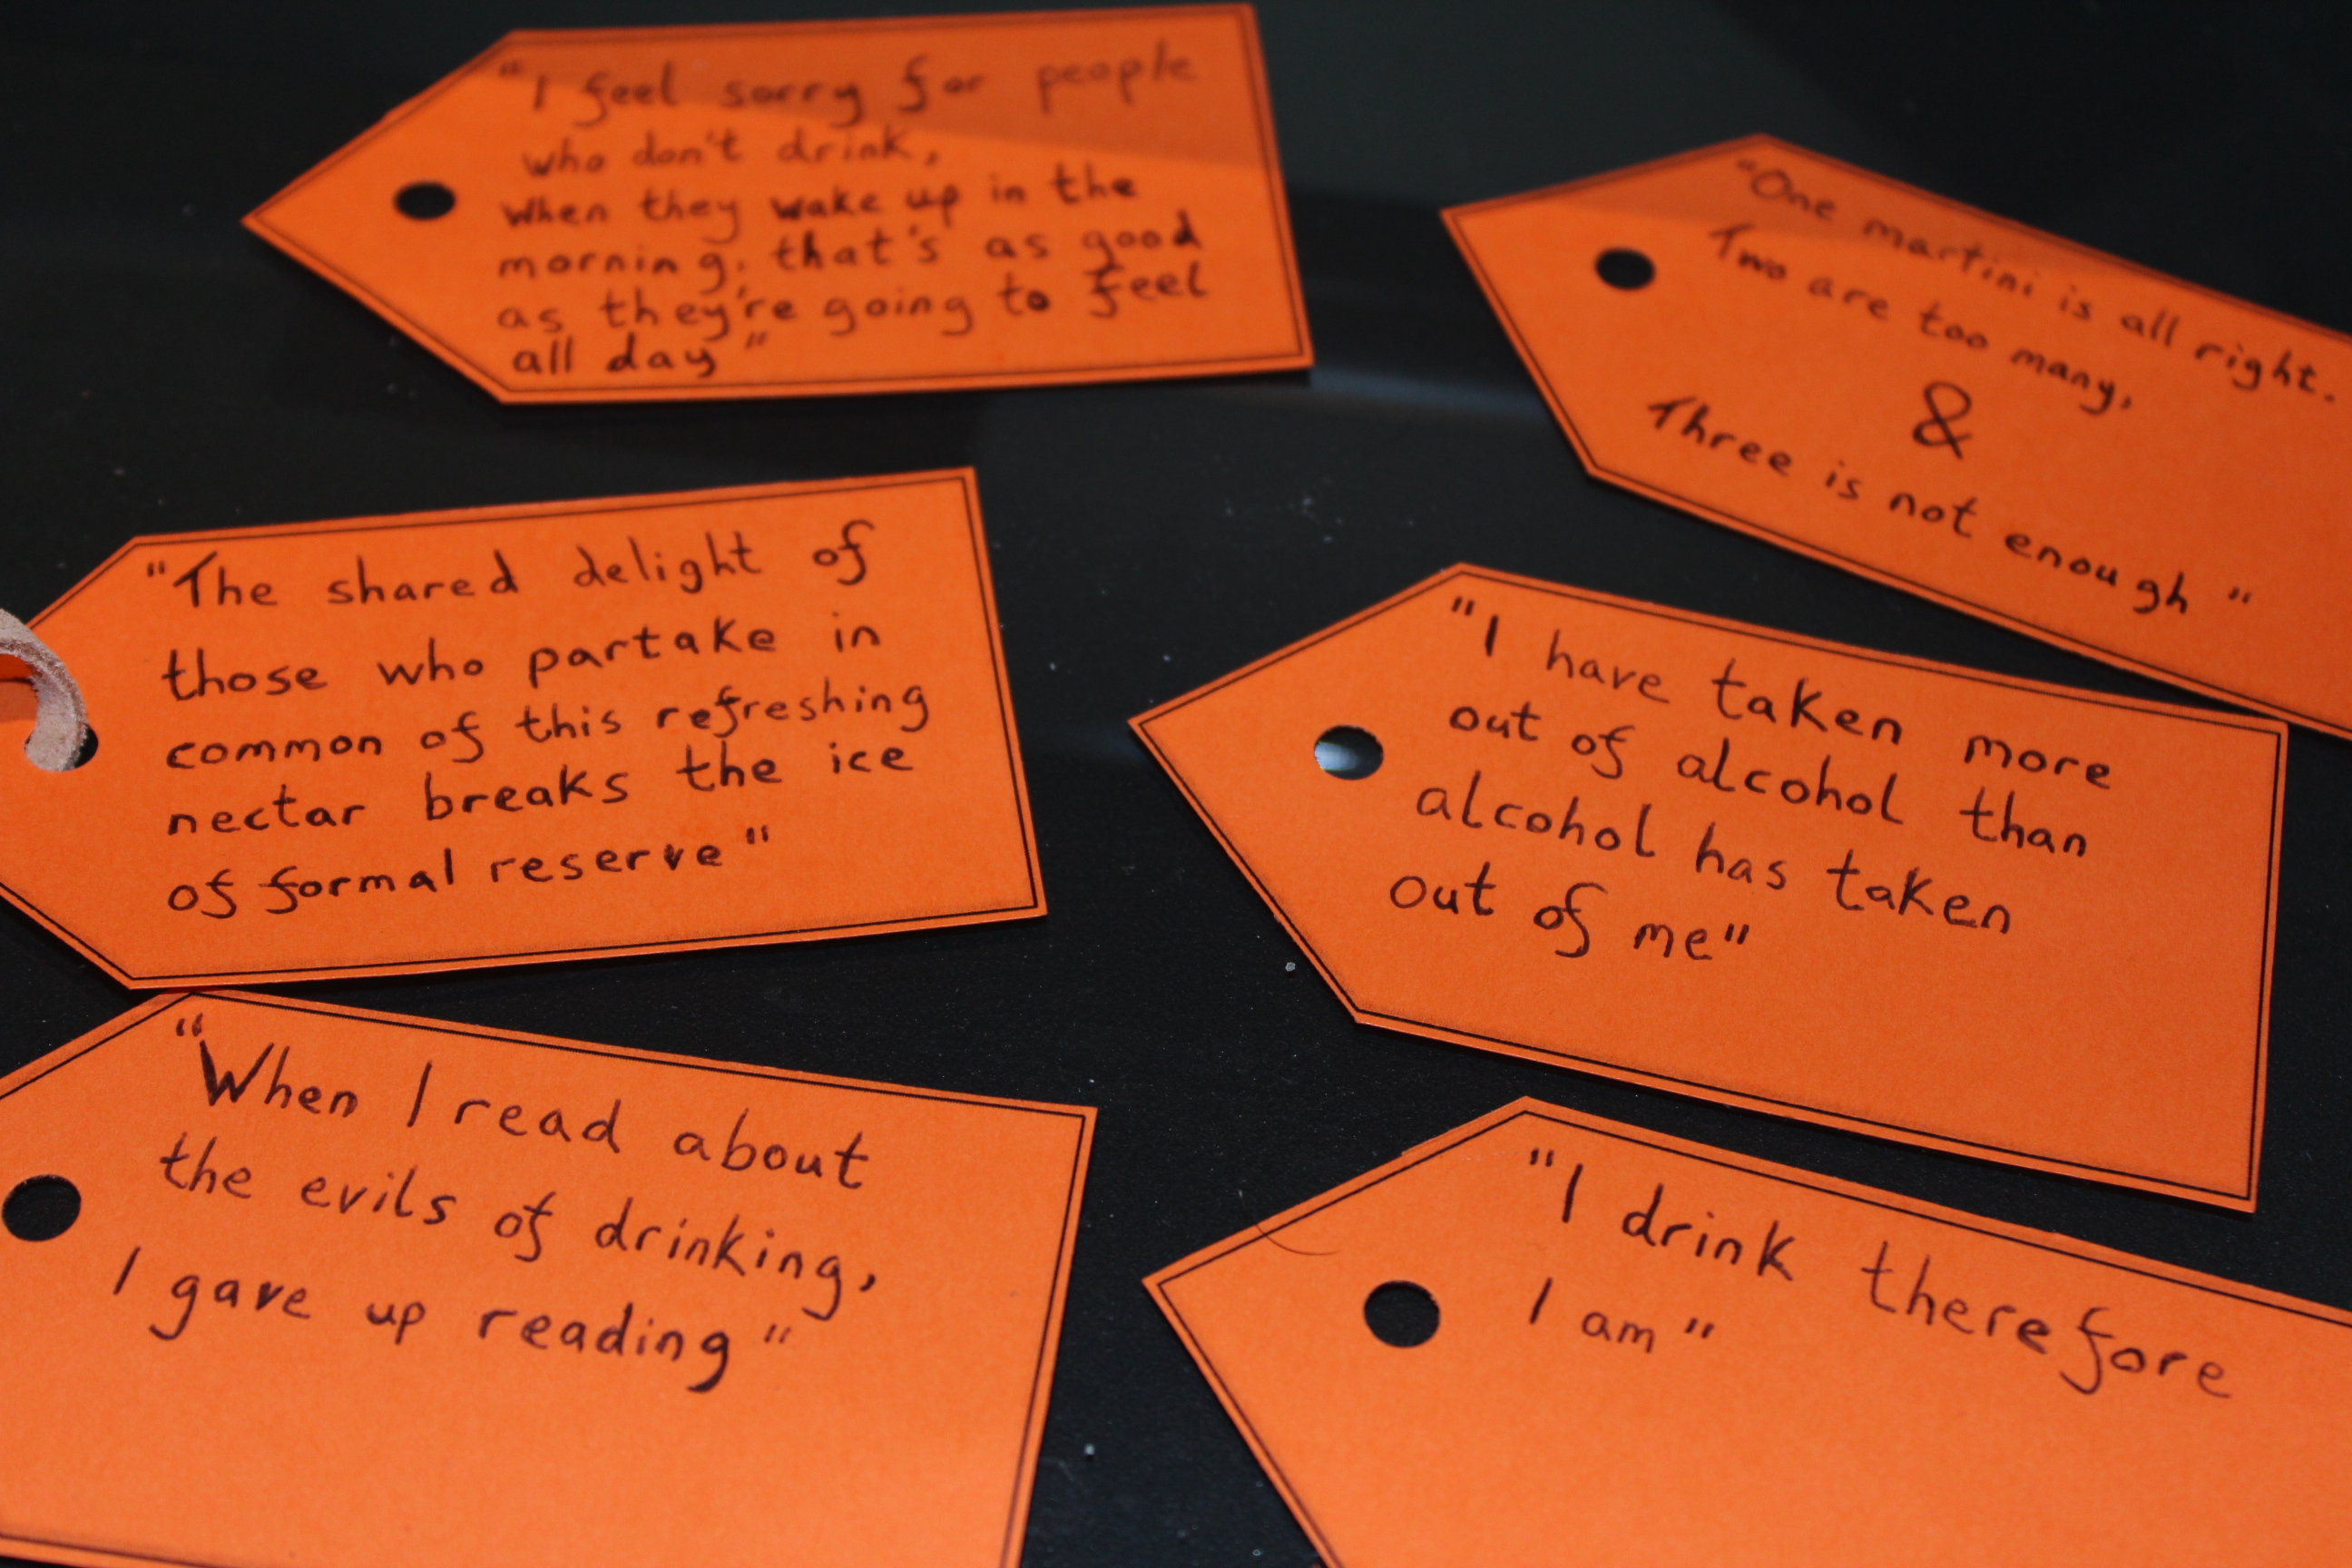 "I feel sorry for people
who don't drink,
when they wake up in the
morning, that's as good
as they're going to feel
all day"
"One martini is all right.
Two are too many,
&
Three is not enough"
"The shared delight of
those who partake in
common of this refreshing
nectar breaks the ice
of formal reserve"
"I have taken more
out of alcohol than
alcohol has taken
out of me"
"When I read about
the evils of drinking,
I gave up reading"
"I drink therefore
I am"